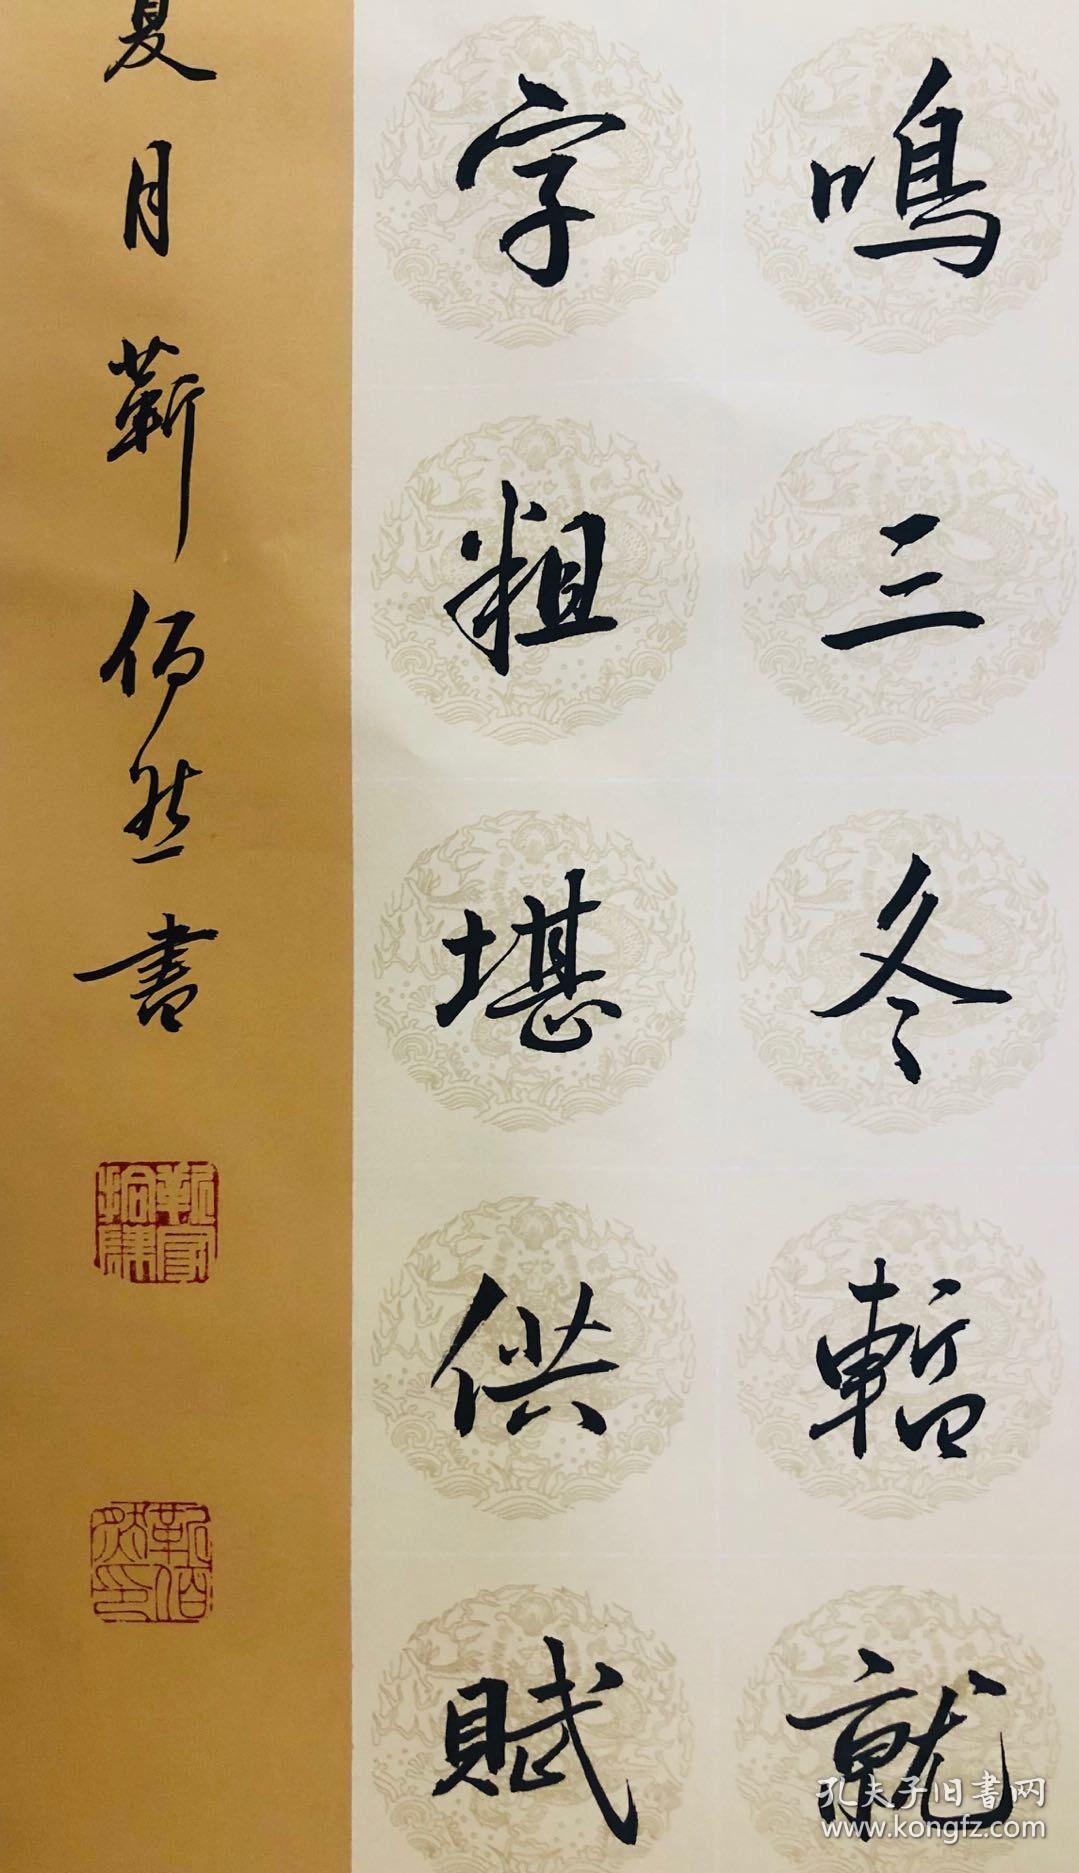 鳴三冬暫就
字粗堪供賦
夏月蘄佰然書
孔夫子旧書网
www.kongfz.com